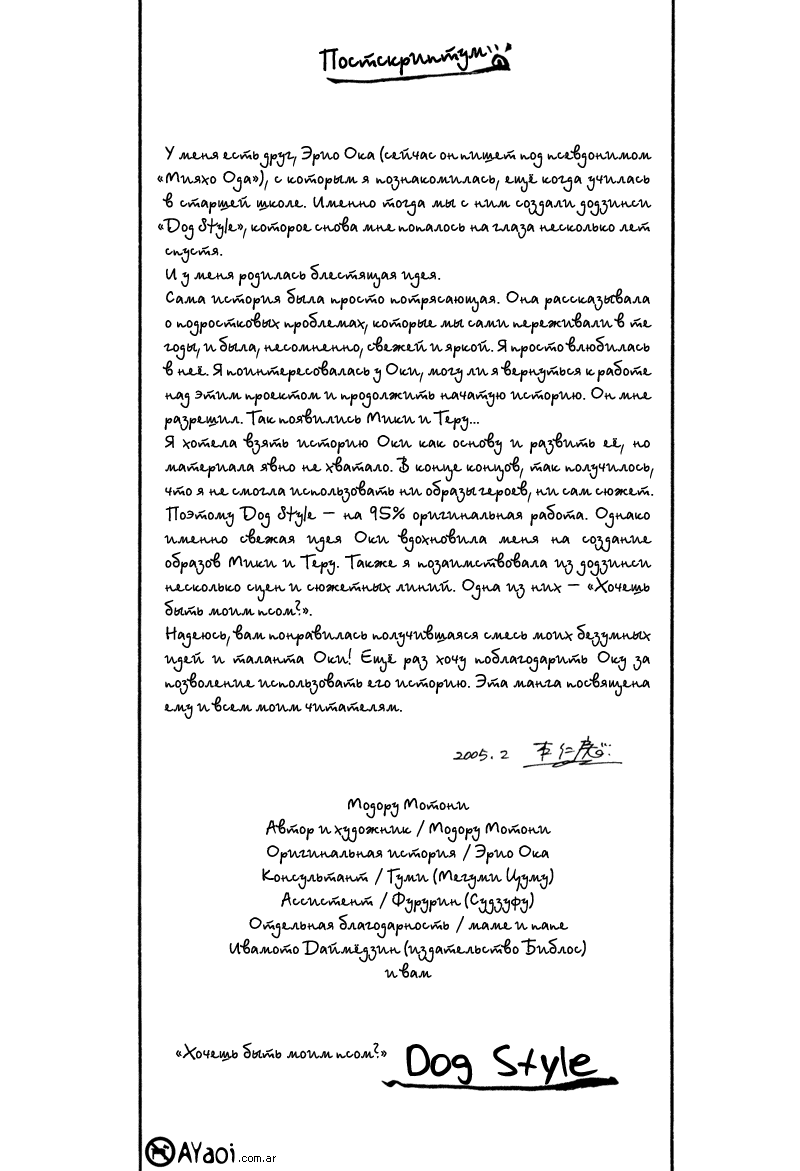 Постскриптум
У меня есть друг, Эрио Ока (сейчас он пишет под псевдонимом
«Мияхо Ода»), с которым я познакомилась, ещё когда училась
в старшей школе. Именно тогда мы с ним создали додзинси
«Dog Style», которое снова мне попалось на глаза несколько лет
спустя.
И у меня родилась блестящая идея.
Сама история была просто потрясающая. Она рассказывала
о подростковых проблемах, которые мы сами переживали в те
годы, и была, несомненно, свежей и яркой. Я просто влюбилась
в неё. Я поинтересовалась у Оки, могу ли я вернуться к работе
над этим проектом и продолжить начатую историю. Он мне
разрешил. Так появились Мики и Теру...
Я хотела взять историю Оки как основу и развить её, но
материала явно не хватало. В конце концов, так получилось,
что я не смогла использовать ни образы героев, ни сам сюжет.
Поэтому Dog Style — на 95% оригинальная работа. Однако
именно свежая идея Оки вдохновила меня на создание
образов Мики и Теру. Также я позаимствовала из додзинси
несколько сцен и сюжетных линий. Одна из них — «Хочешь
быть моим псом?».
Надеюсь, вам понравилась получившаяся смесь моих безумных
идей и таланта Оки! Ещё раз хочу поблагодарить Оку за
позволение использовать его историю. Эта манга посвящена
ему и всем моим читателям.
2005. 2
Модору Мотони
Автор и художник / Модору Мотони
Оригинальная история / Эрио Ока
Консультант / Гуми (Мегуми Цуму)
Ассистент / Фурурин (Судзуфу)
Отдельная благодарность / маме и папе
Ивамото Даймёдзин (издательство Библос)
и вам
«Хочешь быть моим псом?» Dog Style
AYaoi.com.ar